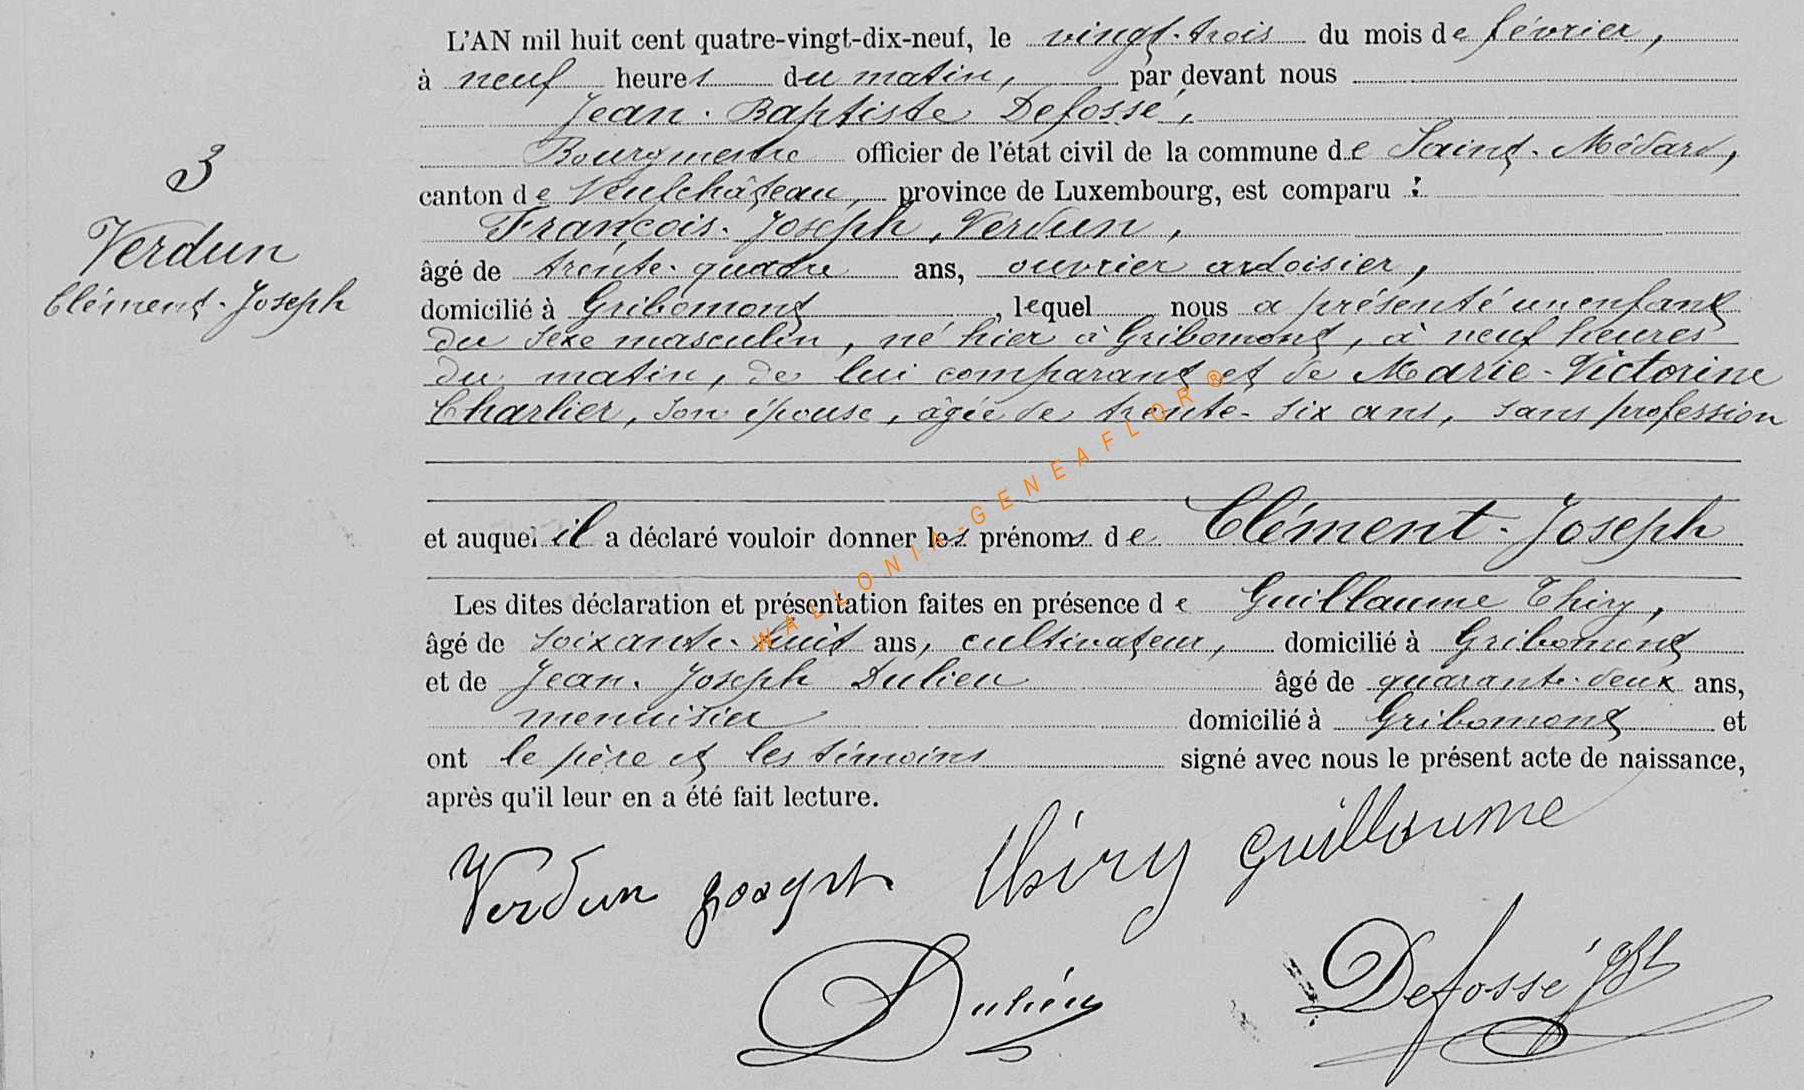 L'AN mil huit cent quatre-vingt-dix-neuf, le vingt-trois du mois de février,
à neuf heures du matin, par devant nous
Jean-Baptiste Defossé,
Bourgmestre officier de l'état civil de la commune de Saint-Médard,
canton de Neufchâteau, province de Luxembourg, est comparu :
François-Joseph, Verdun,
âgé de trente-quatre ans, ouvrier ardoisier,
domicilié à Gribomont, lequel nous a présenté un enfant
du sexe masculin, né hier à Gribomont, à neuf heures
du matin, de lui comparant et de Marie-Victorine
Charlier, son épouse, âgée de trente-six ans, sans profession
3
Verdun
Clément-Joseph
et auquel il a déclaré vouloir donner les prénoms de Clément-Joseph
Les dites déclaration et présentation faites en présence de Guillaume Thiry,
âgé de soixante-huit ans, cultivateur, domicilié à Gribomont
et de Jean-Joseph Dulieu âgé de quarante-deux ans,
menuisier domicilié à Gribomont et
ont le père et les témoins signé avec nous le présent acte de naissance,
après qu'il leur en a été fait lecture.
Verdun Joseph Thiry Guillaume
Dulieu Defossé JBt
WALLONIA-GENEAFLOR ®